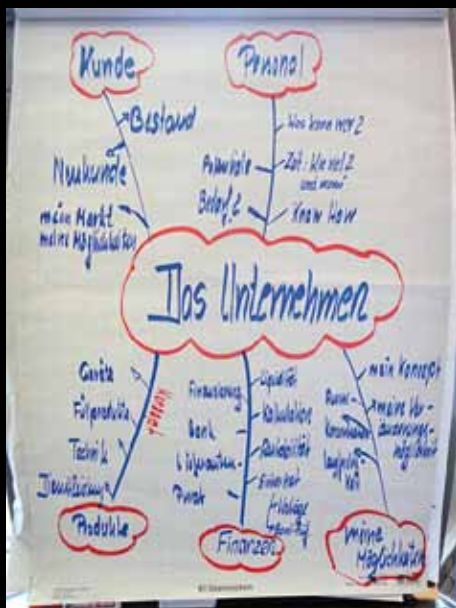 Kunde
Bestand
Neukunde
mein Markt
meine Möglichkeiten
Personal
Was kann wer?
Potentiale
Zeit: Wie viel?
und wann?
Bedarf?
Know How
Das Unternehmen
Geräte
Füllprodukte
Technik
Dienstleistung
Produkte
Finanzierung
Bank
Lieferanten
Privat
Liquidität
Kalkulation
Rentabilität
Sicherheit
Finanzen
mein Konzept
meine
meine
Möglichkeiten